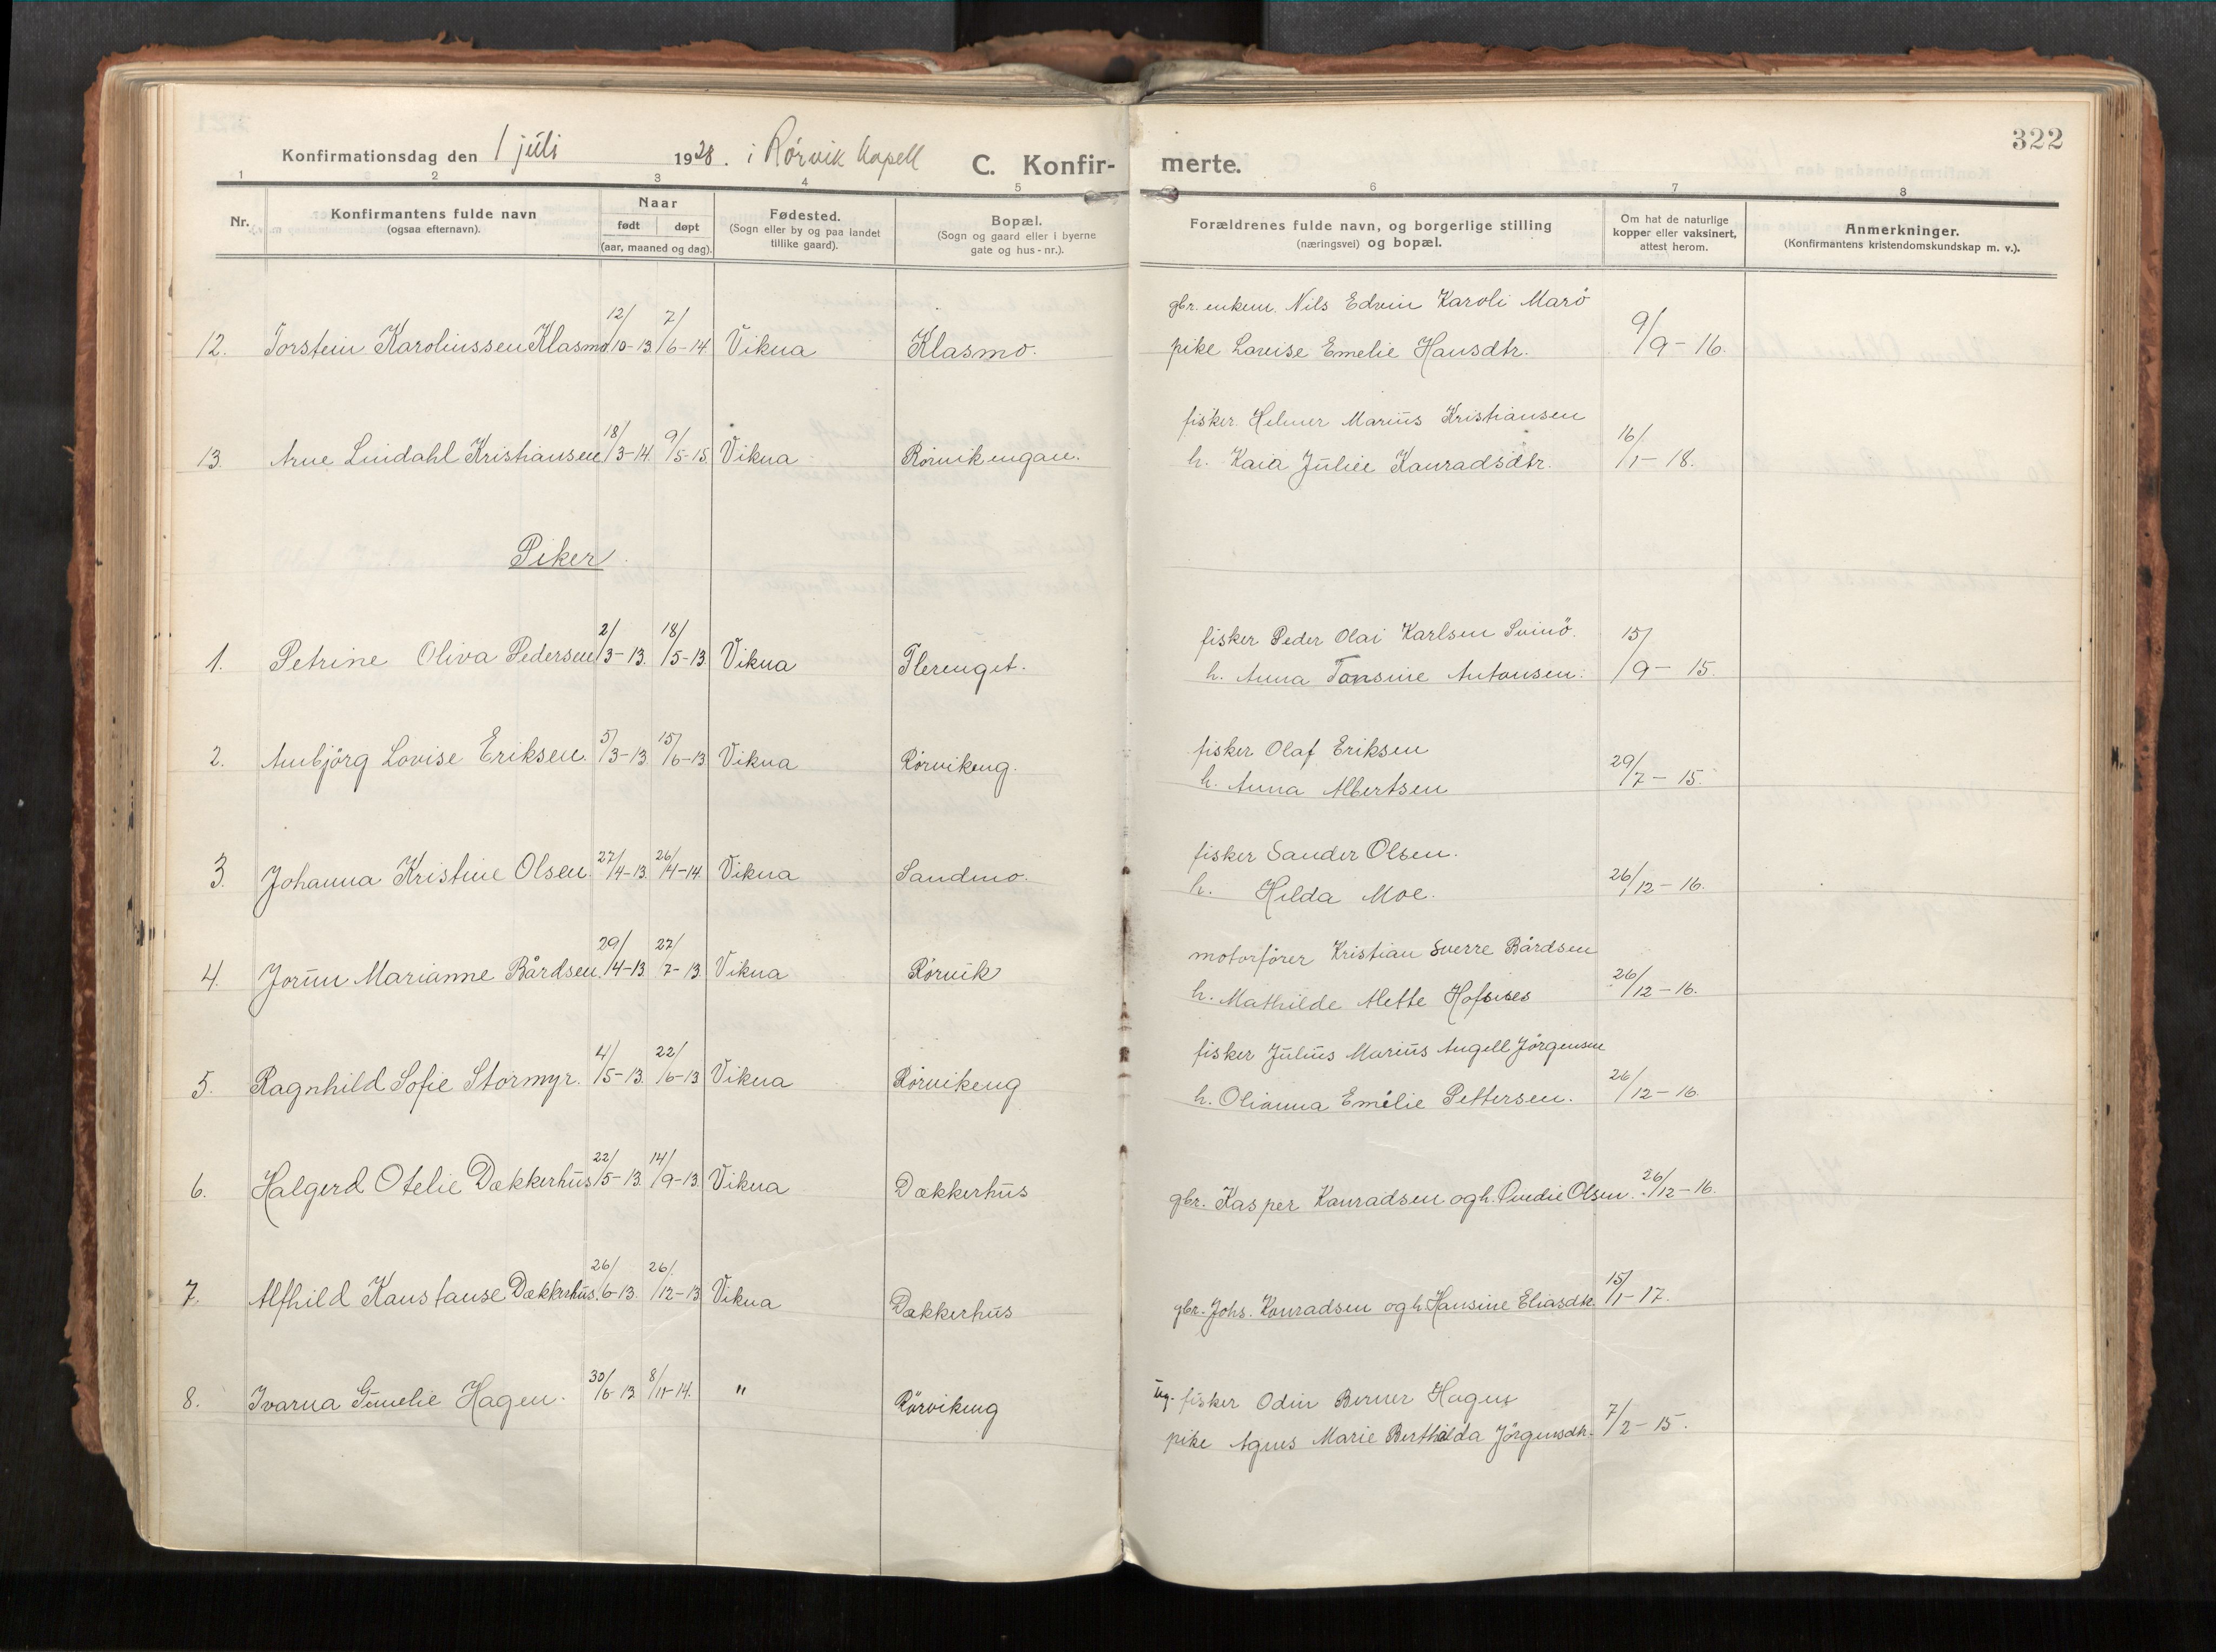 322
Konfirmationsdag den 1 juli 1928. i Rörvik Kapell C. Konfir- merte.
1 2 3 4 5 6 7 8
Nr. Konfirmantens fulde navn (ogsaa efternavn). Naar født døpt (aar, maaned og dag). Fødested. (Sogn eller by og paa landet tillike gaard). Bopæl. (Sogn og gaard eller i byerne gate og hus-nr.). Forældrenes fulde navn, og borgerlige stilling (næringsvei) og bopæl. Om hat de naturlige kopper eller vaksinert, attest herom. Anmerkninger. (Konfirmantens kristendomskundskap m. v.).
gbr. enkem. Nils Edvin Karoli Marö
12. Torstein Karolinssen Klasmo 12/10-13 7/6-14 Vikna Klasmo. pike Lovise Emelie Hansdtr. 9/9-16.
fisker Helmer Marius Kristiansen
13. Arne Lindahl Kristiansen 18/3-14. 9/5-15. Vikna Rörvikengan. h. Kaia Julie Konradsdtr. 16/1-18.
Piker
fisker Peder Olai Karlsen Svinö.
1. Petrine Oliva Pedersen 2/3-13. 18/5-13. Vikna Flerenget. h. Anna Tonsine Antonsen. 15/9-15.
fisker Olaf Eriksen
2. Annbjörg Lovise Eriksen. 5/3-13. 15/6-13 Vikna Rörvikeng. h. Anna Albertsen 29/7-15.
fisker Sander Olsen.
3. Johanna Kristine Olsen. 27/4-13. 26/4-14. Vikna Sandmo. h. Hilda Moe. 26/12-16.
motorförer Kristian Sverre Bårdsen
4. Jorun Marianne Bårdsen. 29/4-13 27/7-13. Vikna Rörvik h. Mathilde Alette Hofsnes 26/12-16.
fisker Julius Marius Angell Jörgensen
5. Ragnhild Sofie Stormyr. 4/5-13. 22/6-13 Vikna Rörvikeng h. Olianna Emilie Pettersen. 26/12-16.
6. Halgerd Otelie Dækkerhus 22/5-13. 14/9-13. Vikna Dækkerhus gbr. Kasper Konradsen og h. Olsen. 26/12-16.
7. Alfhild Konstanse Dækkerhus. 26/6-13. 26/12-13 Vikna Dækkerhus gbr. Johs. Konradsen og h. Hansine Eliasdtr. 15/1-17.
ug. fisker Odin Berner Hagen
8. Ivarna Gunelie Hagen. 30/6-13 8/11-14. " Rörvikeng pike Agnes Marie Berthilda Jörgensdtr. 7/2-15.